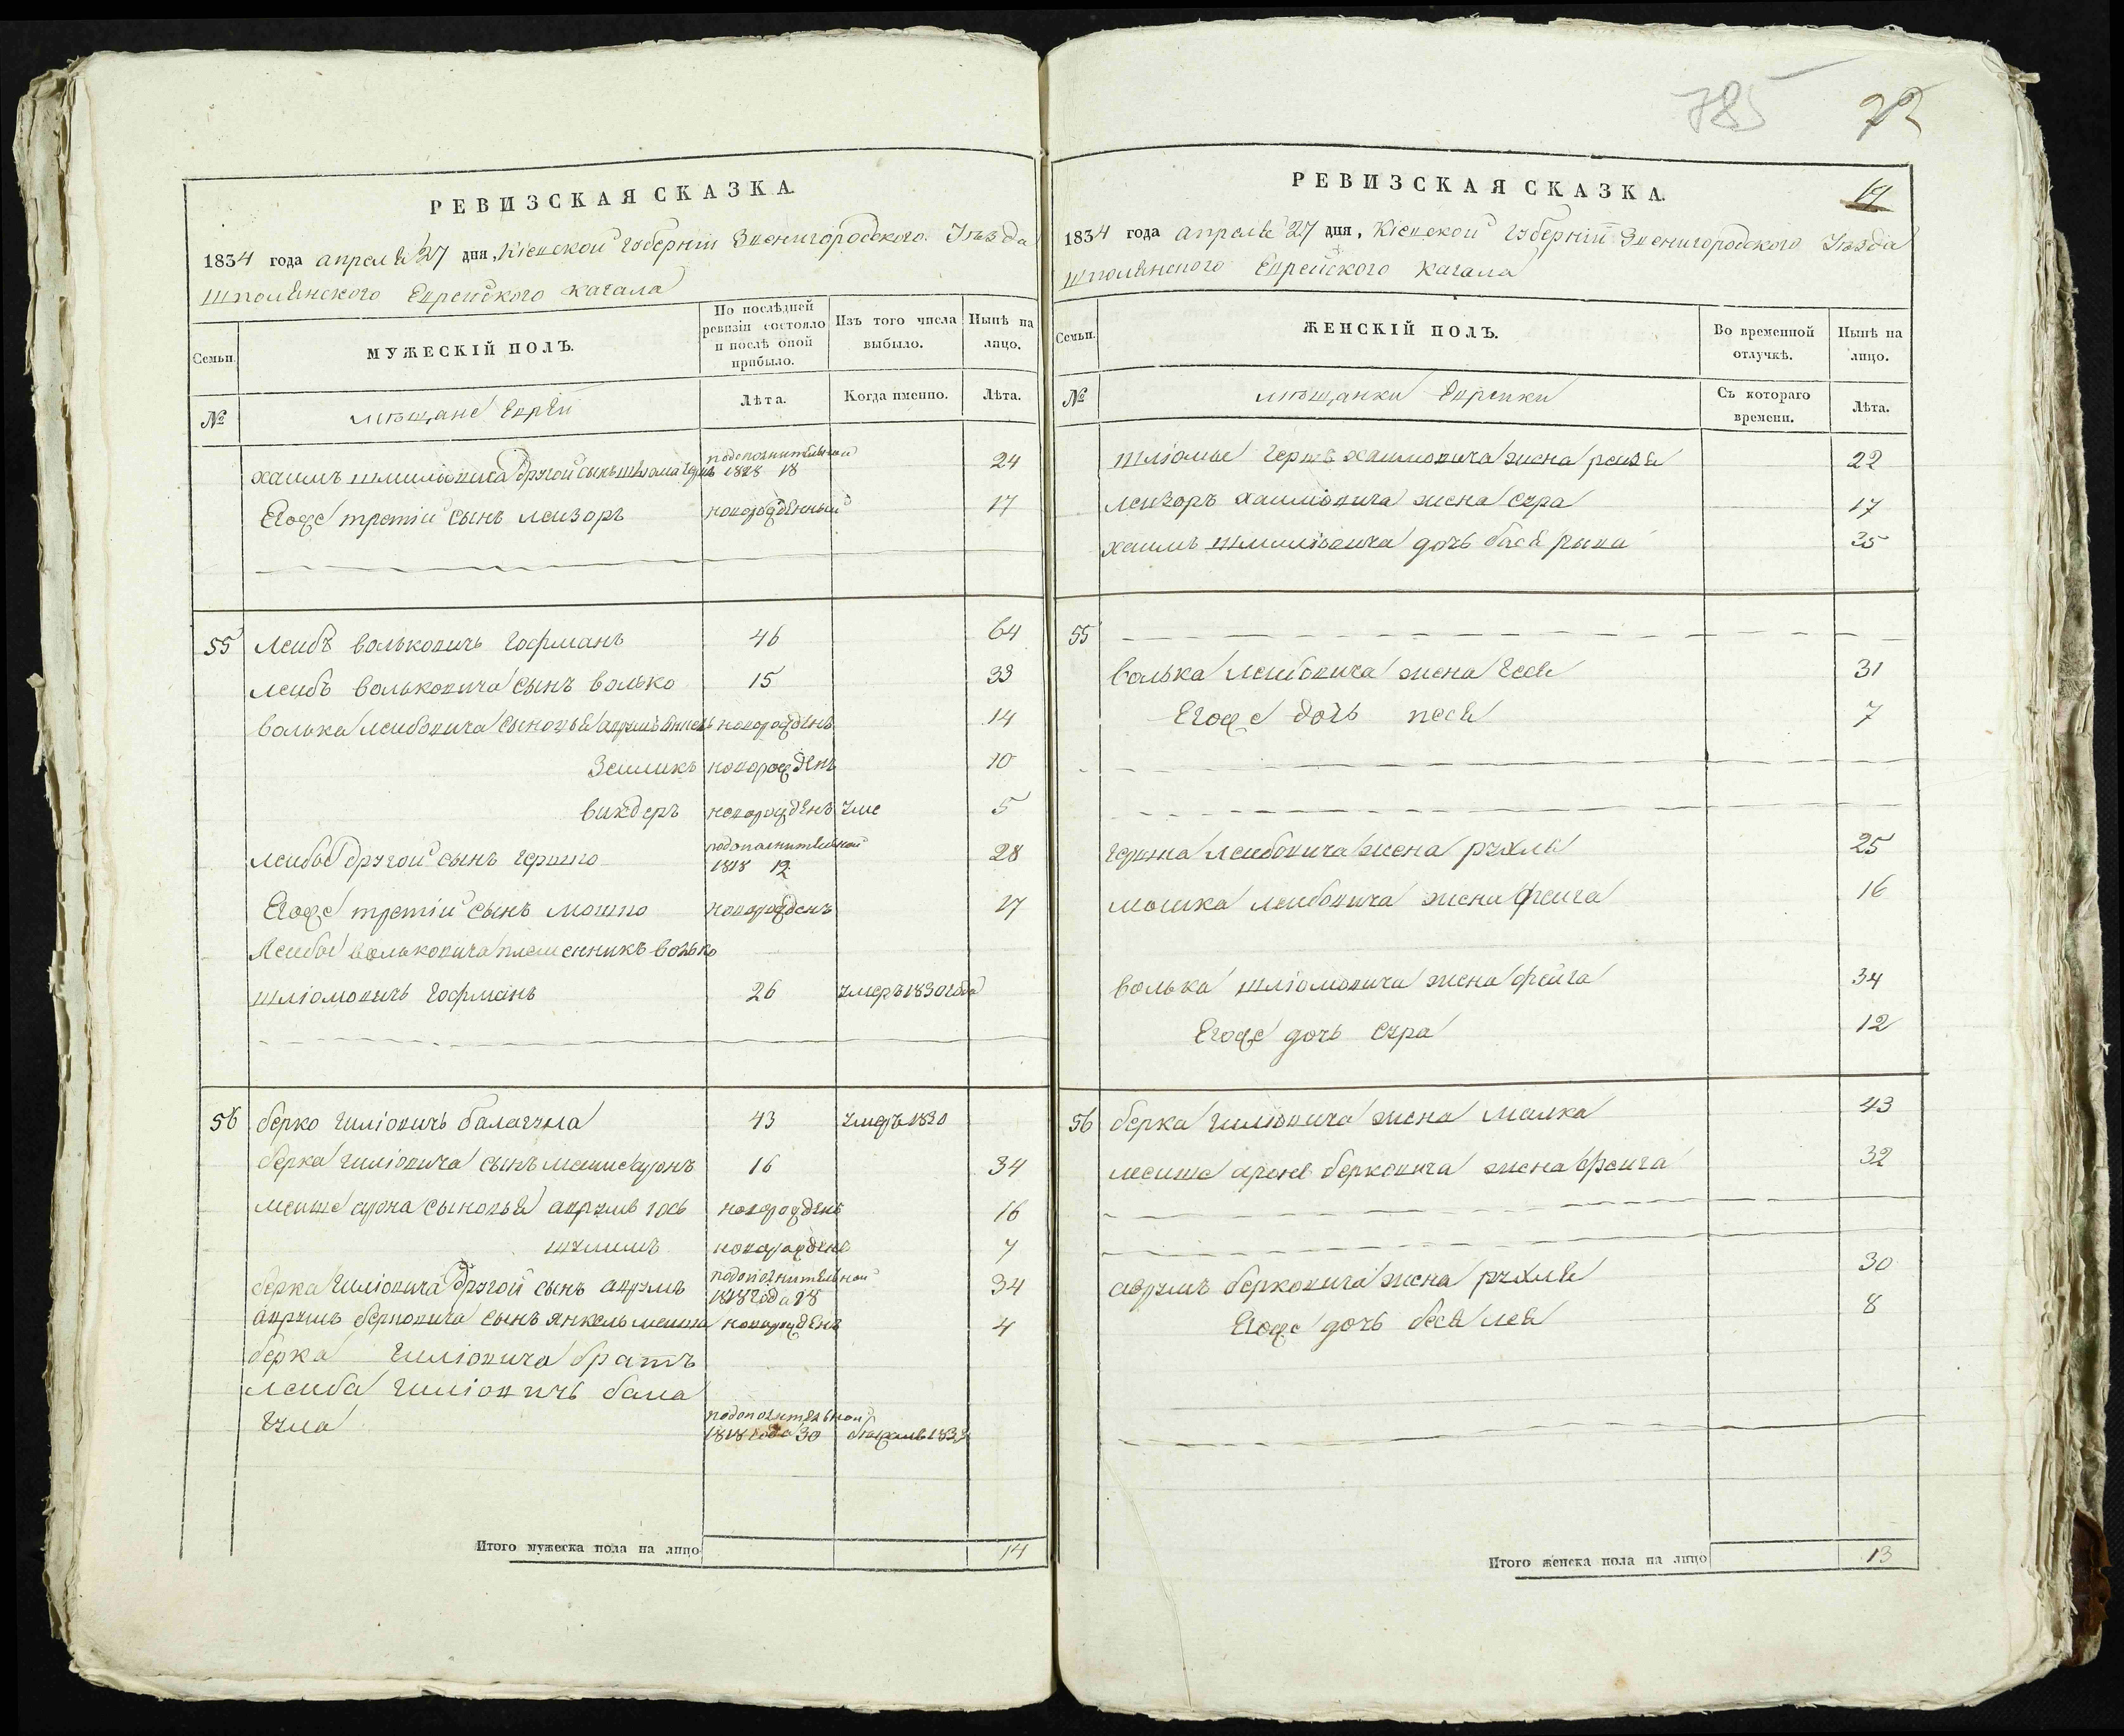 РЕВИЗСКАЯ СКАЗКА.
1834 года апреля 27 дня, Кіевской губерніи Звенигородского Уѣзда
Шполянского Еврейского кагала
Семьи.
МУЖЕСКІЙ ПОЛЪ.
По послѣдней ревизіи состояло и послѣ оной прибыло.
Изъ того числа выбыло.
Нынѣ на лицо.
№
мѣщане Евреи
Лѣта.
Когда именно.
Лѣта.
хаимъ шмиліовича другой сынъ шлиома герш подополнительной 1818 18 24
Егоже третій сынъ леизоръ новорожденный 17
55 Леибъ вольковичь гофманъ 46 64
леибъ вольковича сынъ волько 15 33
волька леибовича сыновья новорожденъ 14
Зеиликъ новорожденъ 10
викдеръ новорожденъ уме 5
леибы другой сынъ гершко подополнительной 1818 12 28
Егоже третій сынъ мошко новорожденъ 17
Леибы вольковича племенникъ волько
шліомовичь гофманъ 26 умеръ 1830 года
56 берко гиліовичь балагула 43 умеръ 1830
берка гиліовича сынъ меише аронъ 16 34
меише арона сыновья аврумъ іось новорожденъ 16
шулимъ новорожденъ 7
берка гиліовича другой сынъ аврумъ подополнительной 1818 года 18 34
аврумъ берковича сынъ янкель меише новорожденъ 4
берка гиліовича братъ
леиба гиліовичь бала
гула подополнительной 1818 года 30 бежалъ 1832
Итого мужеска пола на лицо 14
785 72
РЕВИЗСКАЯ СКАЗКА. 19
1834 года апреля 27 дня, Кіевской губерніи Звенигородского Уѣзда
Шполянского Еврейского кагала
Семьи.
ЖЕНСКІЙ ПОЛЪ.
Во временной отлучкѣ.
Нынѣ на лицо.
№
мѣщанки Евреики
Съ котораго времени.
Лѣта.
шліомы гершъ хаимовича жена реизя 22
леизоръ хаиміовича жена сура 17
хаимъ шмиліовича дочь бася рыва 35
55
волька леибовича жена геся 31
Егоже дочь песя 7
гершка леибовича жена рухля 25
мошка леибовича жена феига 16
волька шліомовича жена феига 34
Егоже дочь сура 12
56 берка гиліовича жена малка 43
меише ароне берковича жена феига 32
аврумъ берковича жена рухля 30
Егоже дочь бася лея 8
Итого женска пола на лицо 13